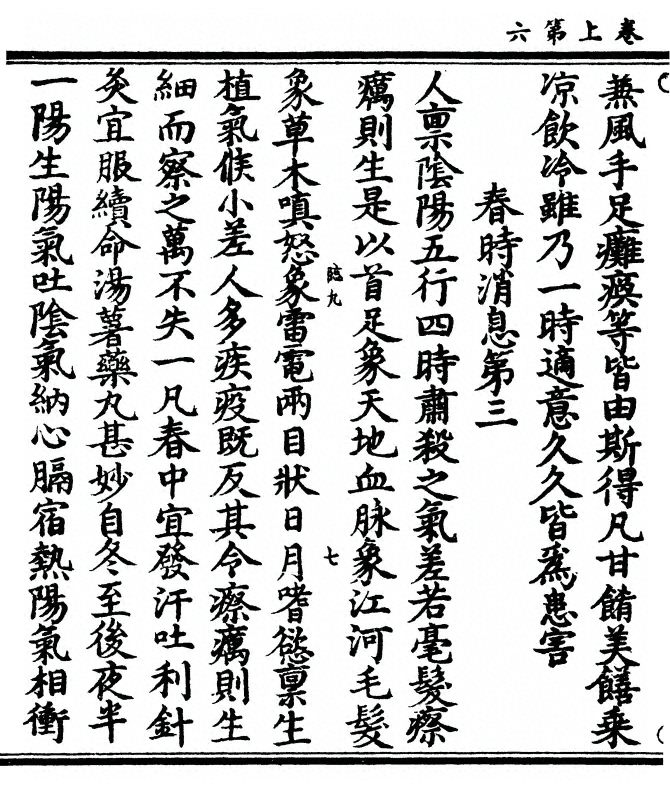 卷上第六
兼風手足癱瘓等皆由斯得凡甘餚美饍乗
凉飲冷雖乃一時適意久久皆爲患害
春時消息第三
人禀陰陽五行四時肅殺之氣差若毫髮瘵
癘則生是以首足象天地血脉象江河毛髮
象草木嗔怒象雷電兩目狀日月嗜慾禀生
九
七
植氣候小差人多疾疫既反其令瘵癘則生
細而察之萬不失一凡春中宜發汗吐利針
灸宜服續命湯薯藥丸甚妙自冬至後夜半
一陽生陽氣吐陰氣納心膈宿熱陽氣相衝